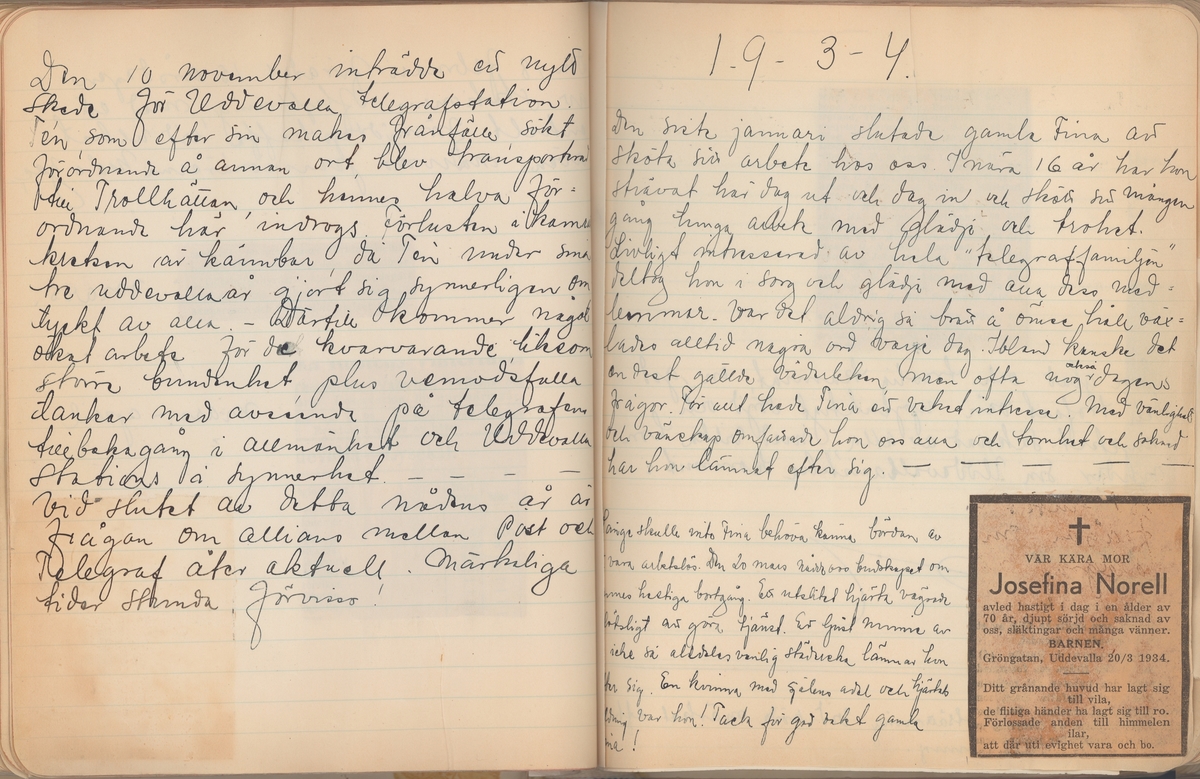 Den 10 november inträdde ett nytt
skede för Uddevalla telegrafstation.
Tén, som efter sin makes frånfälle sökt
förordnande å annan ort blev transporterad
till Trollhättan, och hennes halva för-
ordnande här indrogs. Förlusten i kamrat
kretsen är kännbar, då Tén under sina
tre uddevallaår gjort sig synnerligen om
tyckt av alla. – Därtill kommer något
ökat arbete för de kvarvarande, liksom
större bundenhet plus vemodsfulla
tankar med avseende på telegrafens
tillbakagång i allmänhet och Uddevalla
stations i synnerhet. – – –
Vid slutet av detta nådens år är
frågan om allians mellan Post och
Telegraf åter aktuell. Märkeliga
tider stunda, förvisso!
1-9-3-4.
Den siste januari slutade gamla Fina av
sköta sitt arbete hos oss. I nära 16 år har hon
strävat här dag ut och dag in och skött sitt mången
gång tunga arbete med glädje och trohet.
Livligt intresserad av hela "telegraffamiljen"
deltog hon i sorg och glädje med alla dess med-
lemmar. Var det aldrig så brått å ömse håll väx-
lades alltid några ord varje dag. Ibland kanske det
endast gällde väderleken, men ofta nog också dagens
frågor. För allt hade Fina ett vaket intresse. Med vänlighet
och vänskap omfattade hon oss alla och tomhet och saknad
har hon lämnat efter sig. – – – –
Länge skulle inte Fina behöva känna bördan av
vara arbetslös. Den 20 mars nådde oss budskapet om
hennes hastiga bortgång. Ett utslitet hjärta vägrade
plötsligt att göra tjänst. Ett ljust minne av
icke så alldeles vanlig städerska lämnar hon
efter sig. En kvinna med själens adel och hjärtats
bildning var hon! Tack för god vakt gamla
Fina!
VÅR KÄRA MOR
Josefina Norell
avled hastigt i dag i en ålder av
70 år, djupt sörjd och saknad av
oss, släktingar och många vänner.
BARNEN.
Gröngatan, Uddevalla 20/3 1934.
Ditt grånande huvud har lagt sig
till vila,
de flitiga händer ha lagt sig till ro.
Förlossade anden till himmelen
ilar,
att där uti evighet vara och bo.